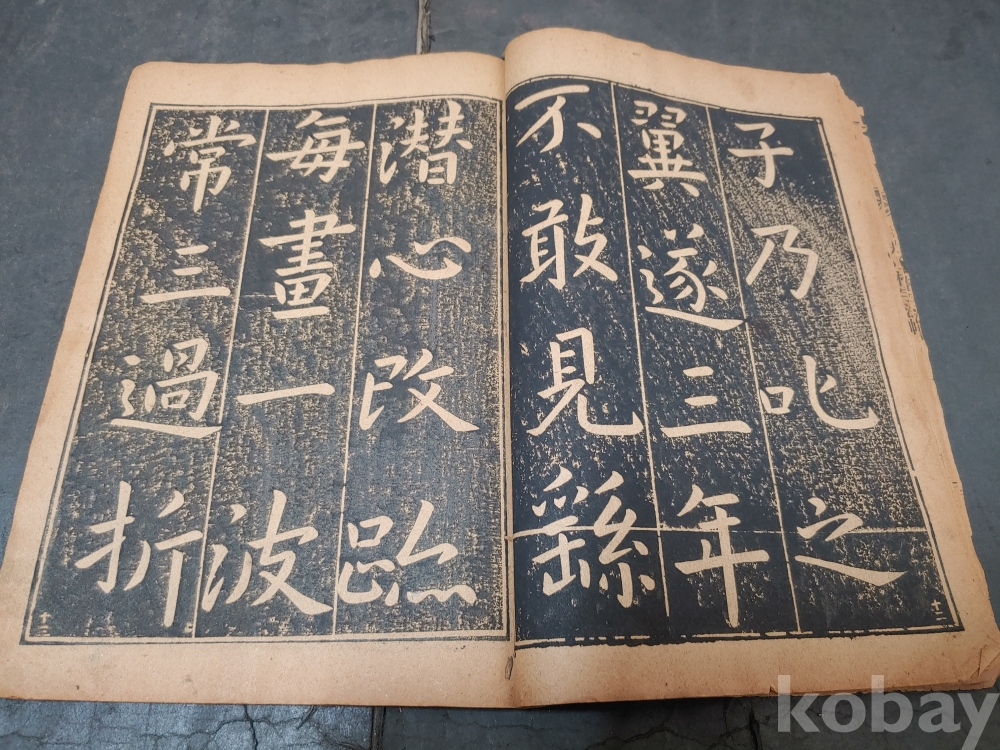 子乃叱之
翼遂三年
不敢見繇
潜心改跡
每畫一波
常三過折
kobay